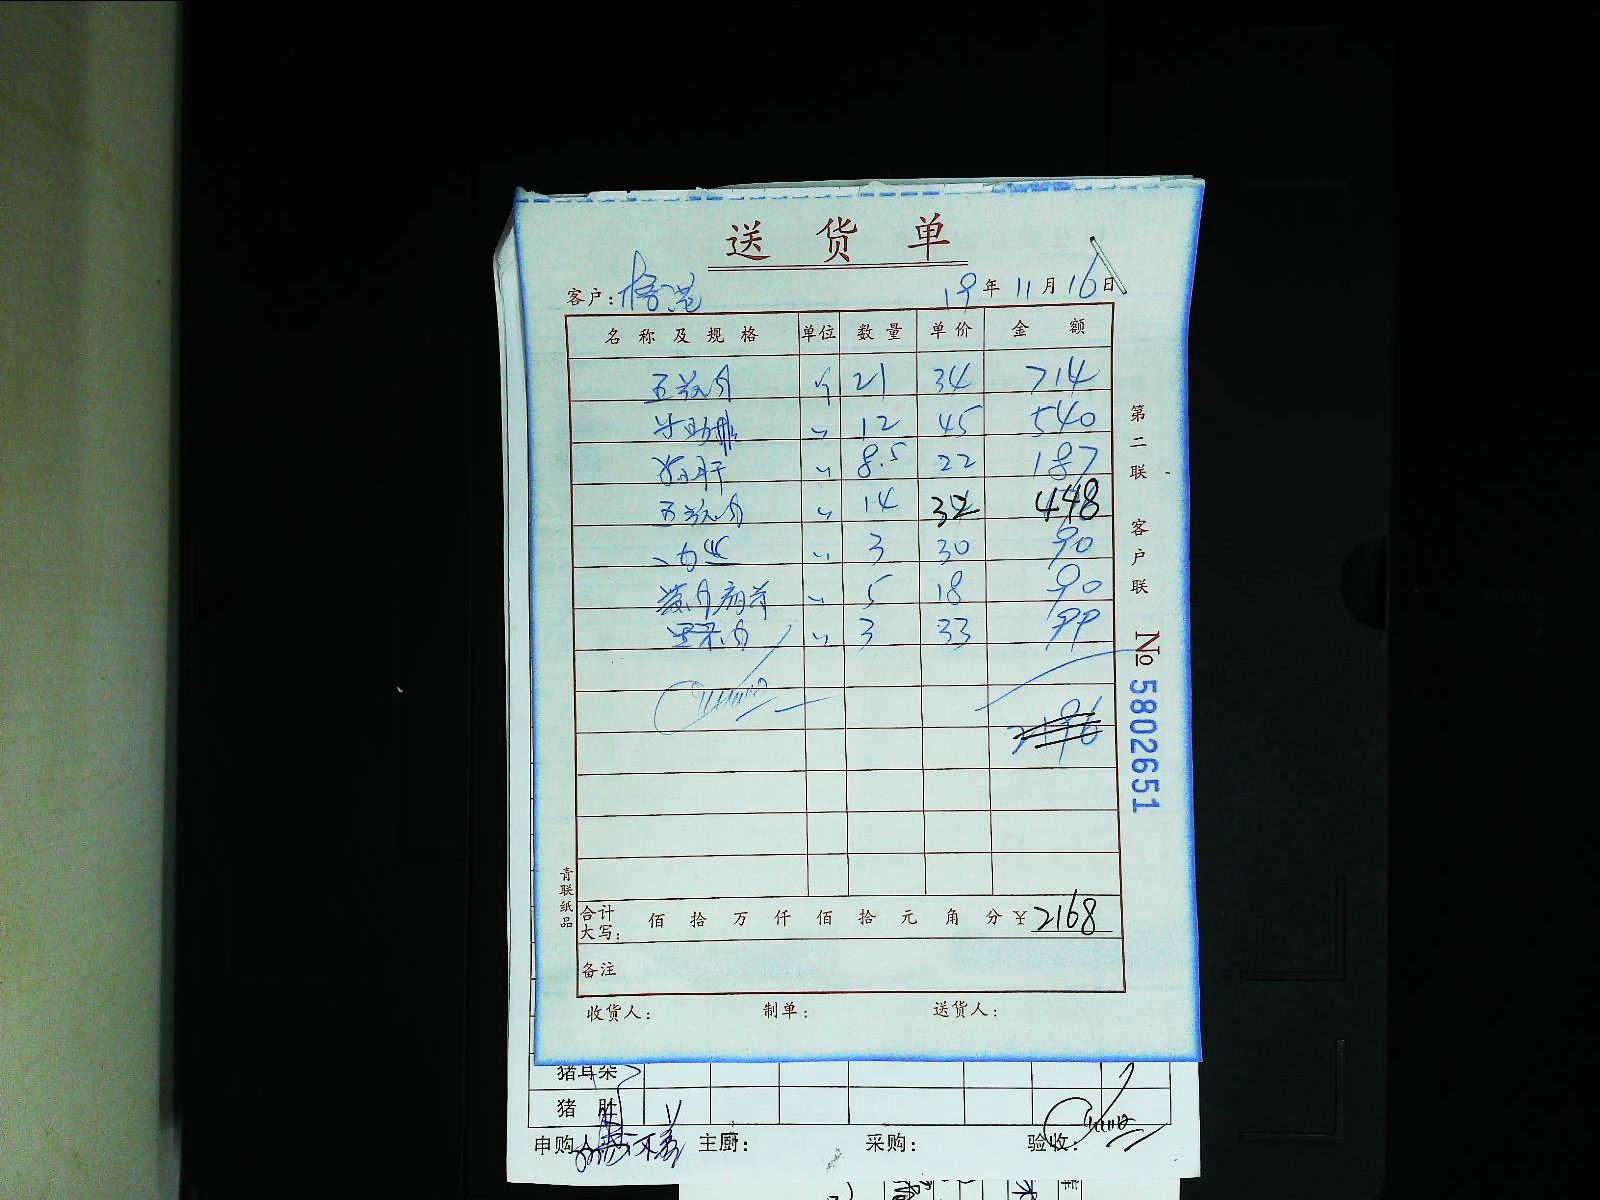 送货单
客户: 19年11月16日
名称及规格 单位 数量 单价 金额
五花肉 斤 21 34 714
牛肋排 〃 12 45 540
猪肝 〃 8.5 22 187
五花肉 〃 14 32 448
〃 3 30 90
〃 5 18 90
里脊肉 〃 3 33 99
2196
合计大写: 佰 拾 万 仟 佰 拾 元 角 分 ¥2168
备注
收货人: 制单: 送货人:
第二联 客户联
№ 5802651
青联纸品
猪耳朵
猪肚
申购人: 主厨: 采购: 验收: